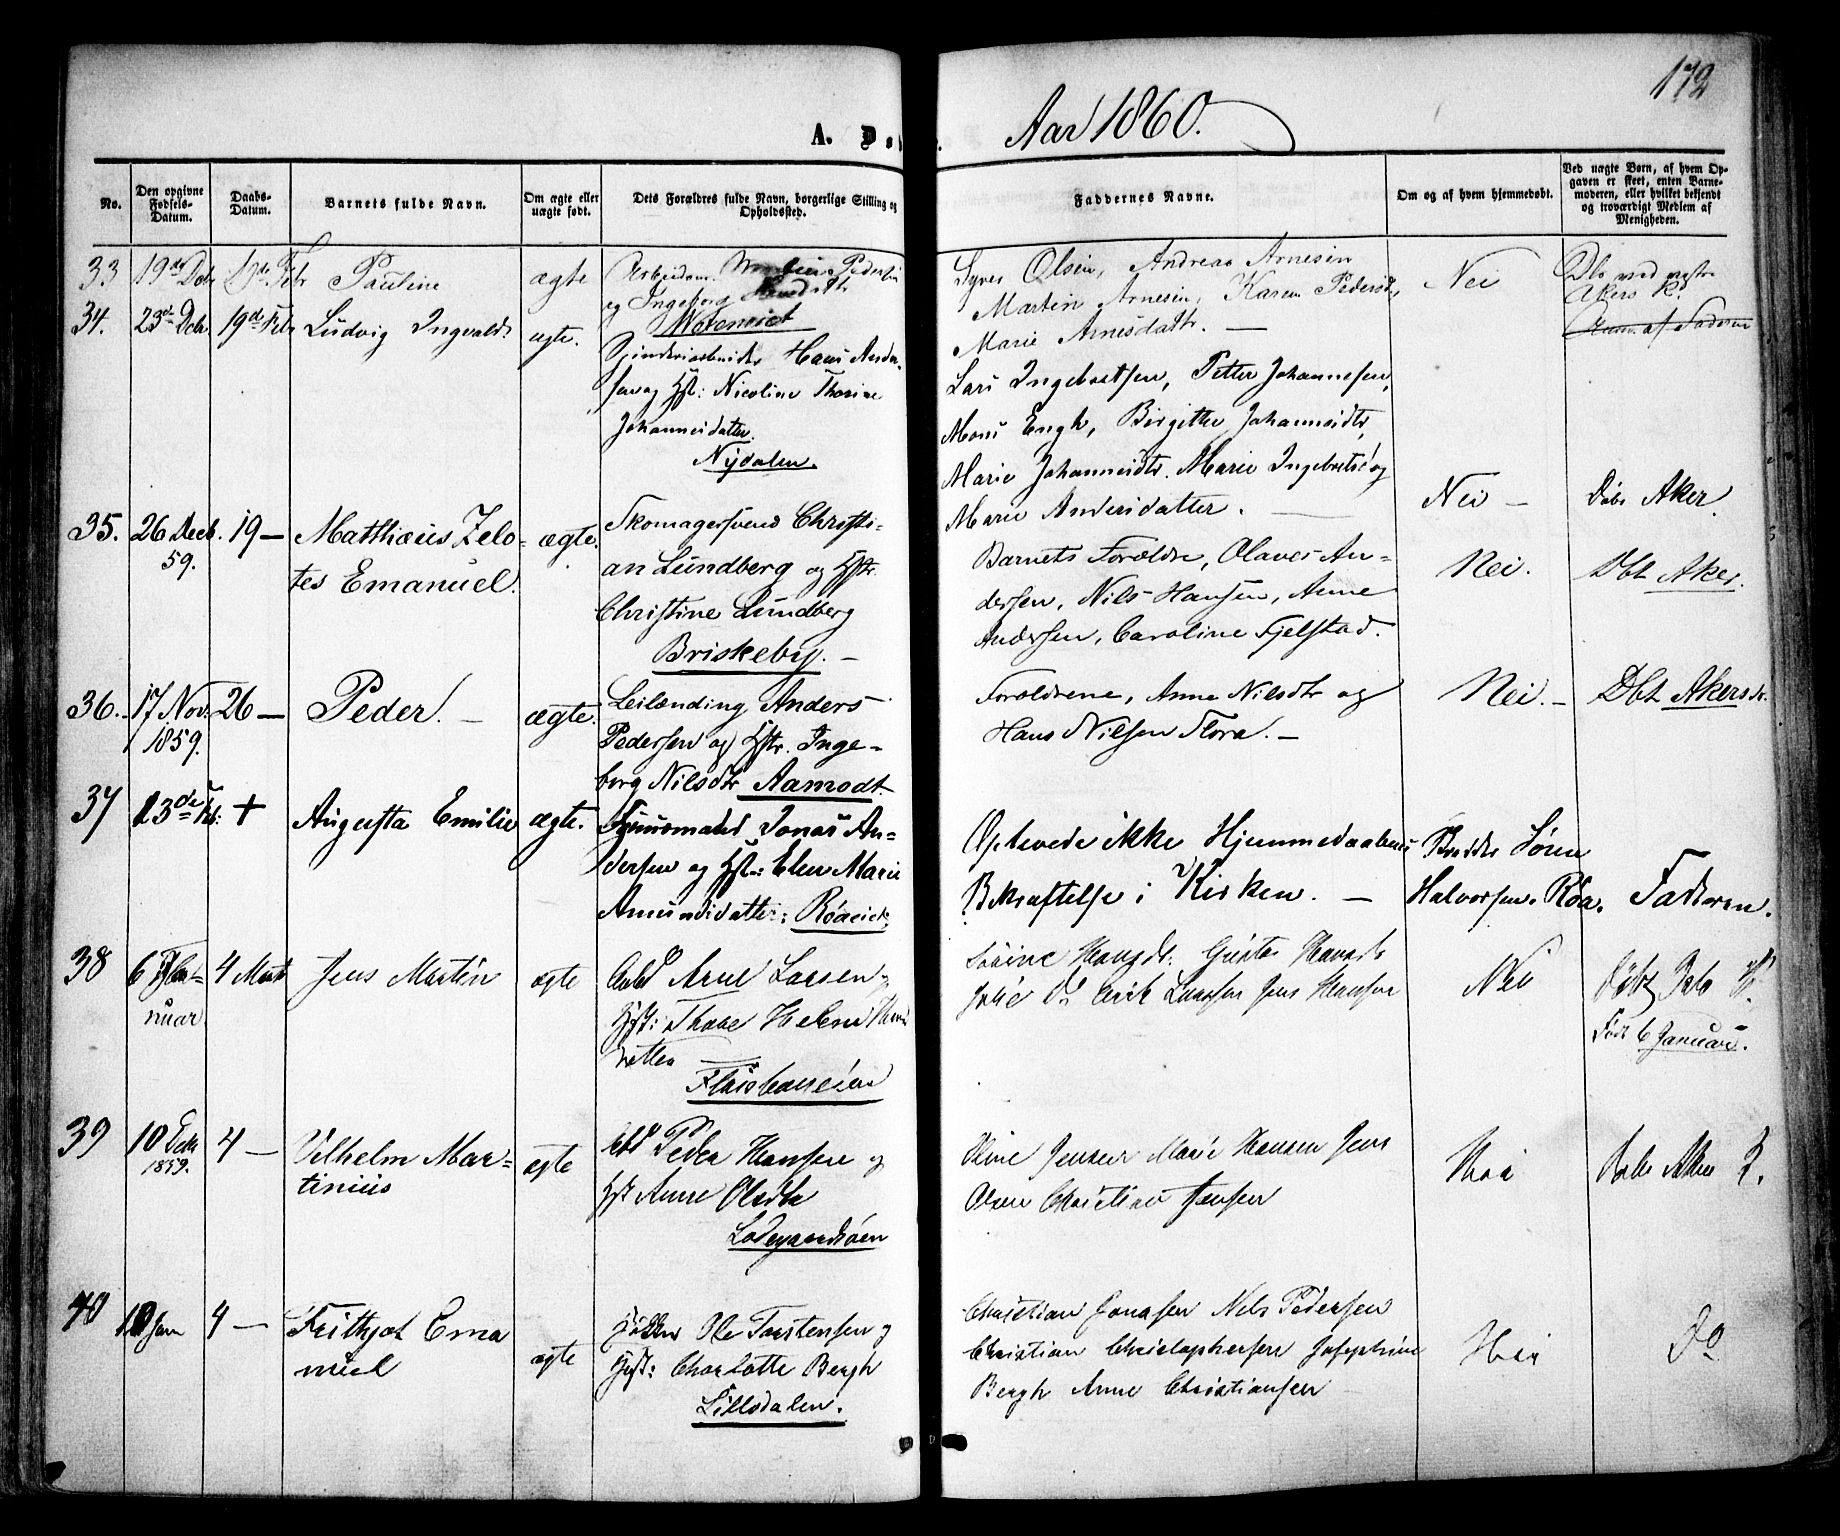 172
A. D
Aar 1860.
No.
Den opgivne Fødsels-Datum.
Daabs-Datum.
Barnets fulde Navn.
Om ægte eller uægte født.
Dets Forældres fulde Navn, borgerlige Stilling og Opholdssted.
Faddernes Navne.
Om og af hvem hjemmedøbt.
Ved uægte Børn, af hvem Opgaven er skeet, enten Barnemoderen, eller hvilket bekjendt og troværdigt Medlem af Menigheden.
33 19de Dcb 19de Febr Pauline ægte
Syver Olsen, Andreas Arnesen
Martin Arnesen, Karen Pedersdtr
Marie Arnesdattr. —
Nei
34. 23de Dcbr 19de Febr Ludvig Ingvald ægte.
Spinderiarbeider Hans Ander-
sen og Hst: Nicoline Thorine
Johannesdatter.
Nydalen.
Lars Ingebretsen, Petter Johannesen,
Mons Engh, Birgitte Johannesdtr,
Marie Johannesdtr. Marie Ingebrets og
Marie Andersdatter. —
Nei —
Døbt Aker.
35. 26 Decb. 59. 19 — Matthæus Zelo-
tes Emanuel.
ægte.
Skomagersvend Christi-
an Lundberg og Hstr.
Christine Lundberg
Briskeby. —
Barnets Forældre, Olaves An-
dersen, Nils Hansen, Anne
Andersen, Caroline Fjelstad.
Nei.
Dbt Aker.
36. 17 Nov. 1859. 26 — Peder. — ægte.
Leilænding Anders
Pedersen og Hstr. Inge-
borg Nilsdtr Aamodt.
Forældrene, Anne Nilsdtr og
Hans Nilsen Flora. —
Nei. —
Dbt Akers
37 23de Feb: + Augusta Emilie ægte.
Huusmand Jonas An-
dersen og Hst: Elen Marie
Amundsdatter: Røaeiet
Optevede ikke Hjemmedaabens
Bekræftelse i Kirken. —
Søren
Halvorsen. Røa.
Faderen.
38 6 Januar 4 Marts Jens Martin ægte
Arbd Arne Larsen og
Hst: Thabe Helene
datter
Nei
Født 6 Januar.
39 10 Decb 1859. 4 — Vilhelm Mar-
tinius
ægte
Arbd Peder Hansen og
Hst Anne Olsdtr
Oline Jensen Marie Hansen Jens
Olsen Christine Jensen
Nei
Døbt Aker K.
40 10 Jan 4 — Frithjof Ema
nuel
ægte
Ole Torstensen og
Hust: Charlotte Bergh
Lillodalen.
Christian Jonasen Nils Pedersen
Christian Christophersen Josephine
Bergh Anne Christiansen
Nei
Do